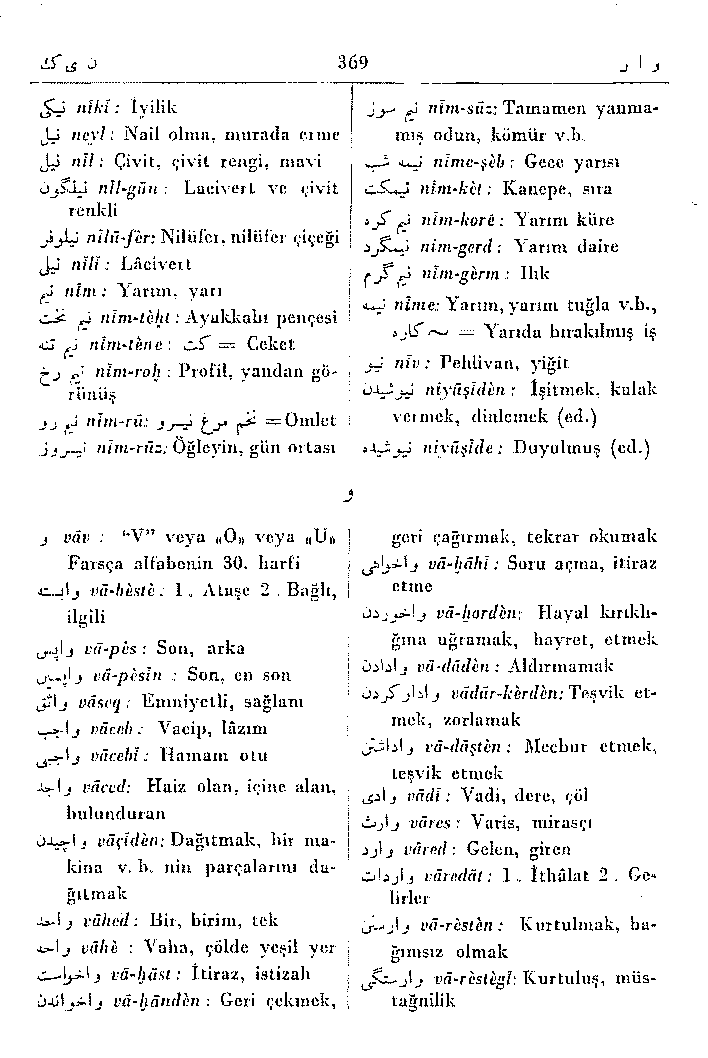 ن ی ک 369 و ا ر
نیکی nîkî : İyilik
نیل neyl : Nail olma, murada erme
نیل nîl : Çivit, çivit rengi, mavi
نیلگون nîl-gûn : Lacivert ve çivit
renkli
نیلوفر nîlû-fèr: Nilüfer, nilüfer çiçeği
نیلی nîlî : Lâcivert
نیم nîm : Yarım, yarı
نیم تخت nîm-tèht : Ayakkabı pençesi
نیم تنه nîm-tène : کت = Ceket
نیم رخ nîm-roḫ : Profil, yandan gö-
rünüş
نیم رو nîm-rû: تخم مرغ نیمرو =Omlet
نیمروز nîm-rûz: Öğleyin, gün ortası
نیم سوز nîm-sûz: Tamamen yanma-
mış odun, kömür v.b.
نیمه شب nîme-şèb : Gece yarısı
نیمکت nîm-kèt : Kanepe, sıra
نیم کره nîm-kore : Yarım küre
نیمگرد nîm-gerd : Yarım daire
نیم گرم nîm-gèrm : Ilık
نیمه nîme: Yarım, yarım tuğla v.b.,
کاره ~ = Yarıda bırakılmış iş
نیو nîv : Pehlivan, yiğit
نیوشیدن niyûşîdèn : İşitmek, kulak
vermek, dinlemek (ed.)
نیوشیده niyûşîde : Duyulmuş (ed.)
و
و vâv : “V” veya «O» veya «U»
Farsça alfabenin 30. harfi
وابسته vâ-bèstè : 1. Ataşe 2. Bağlı,
ilgili
واپس vâ-pès : Son, arka
واپسین vâ-pèsîn : Son, en son
واثق vâseq : Emniyetli, sağlam
واجب vâceb : Vacip, lâzım
واجبی vâcebî : Hamam otu
واجد vâced: Haiz olan, içine alan,
bulunduran
واچیدن vâçîdèn: Dağıtmak, bir ma-
kina v.b. nin parçalarını da-
ğıtmak
واحد vâhed : Bir, birim, tek
واحه vâhè : Vaha, çölde yeşil yer
واخواست vâ-ḫâst : İtiraz, istizah
واخواندن vâ-ḫândèn : Geri çekmek,
geri çağırmak, tekrar okumak
واخواهی vâ-ḫâhî : Soru açma, itiraz
etme
واخوردن vâ-ḫordèn: Hayal kırıklı-
ğına uğramak, hayret, etmek
وادادن vâ-dâdèn : Aldırmamak
وادار کردن vâdâr-kèrdèn: Teşvik et-
mek, zorlamak
واداشتن vâ-dâştèn : Mecbur etmek,
teşvik etmek
وادی vâdî : Vadi, dere, çöl
وارث vâres : Varis, mirasçı
وارد vâred : Gelen, giren
واردات vâredât : 1. İthâlat 2. Ge-
lirler
وارستن vâ-rèstèn : Kurtulmak, ba-
ğımsız olmak
وارستگی vâ-rèstègî: Kurtuluş, müs-
tağnilik